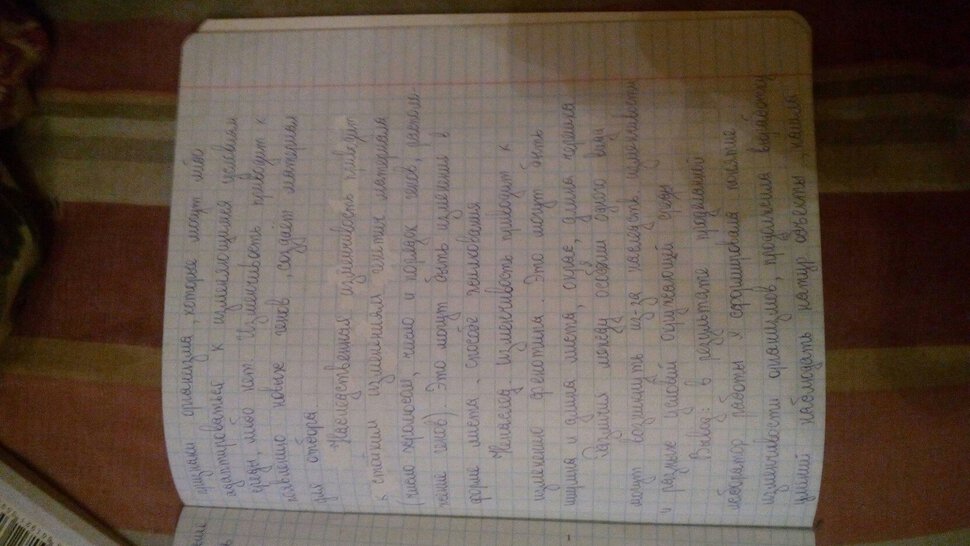 признаки организма, которые могут либо
адаптироваться к изменяющимся условиям
среды, либо нет. Изменчивость приводит к
появлению новых генов, создаёт материал
для отбора.
Наследственная изменчивость приводит
к стойким изменениям генетич материала
(число хромосом, число и порядок генов, располо-
жение генов). Это могут быть изменения в
форме листа, способе жилкования
Ненаслед. изменчивость приводит к
изменению фенотипа. Это могут быть
ширина и длина листа, окрас, длина черешка
Различия между особями одного вида
могут возникнуть из-за наследств. изменчивости
и разных условий окружающей среды
Вывод: в результате проделанной
лабратор работы я сформировал понятие
изменчивости организмов, продолжил выработку
умений наблюдать натур объекты, нашли